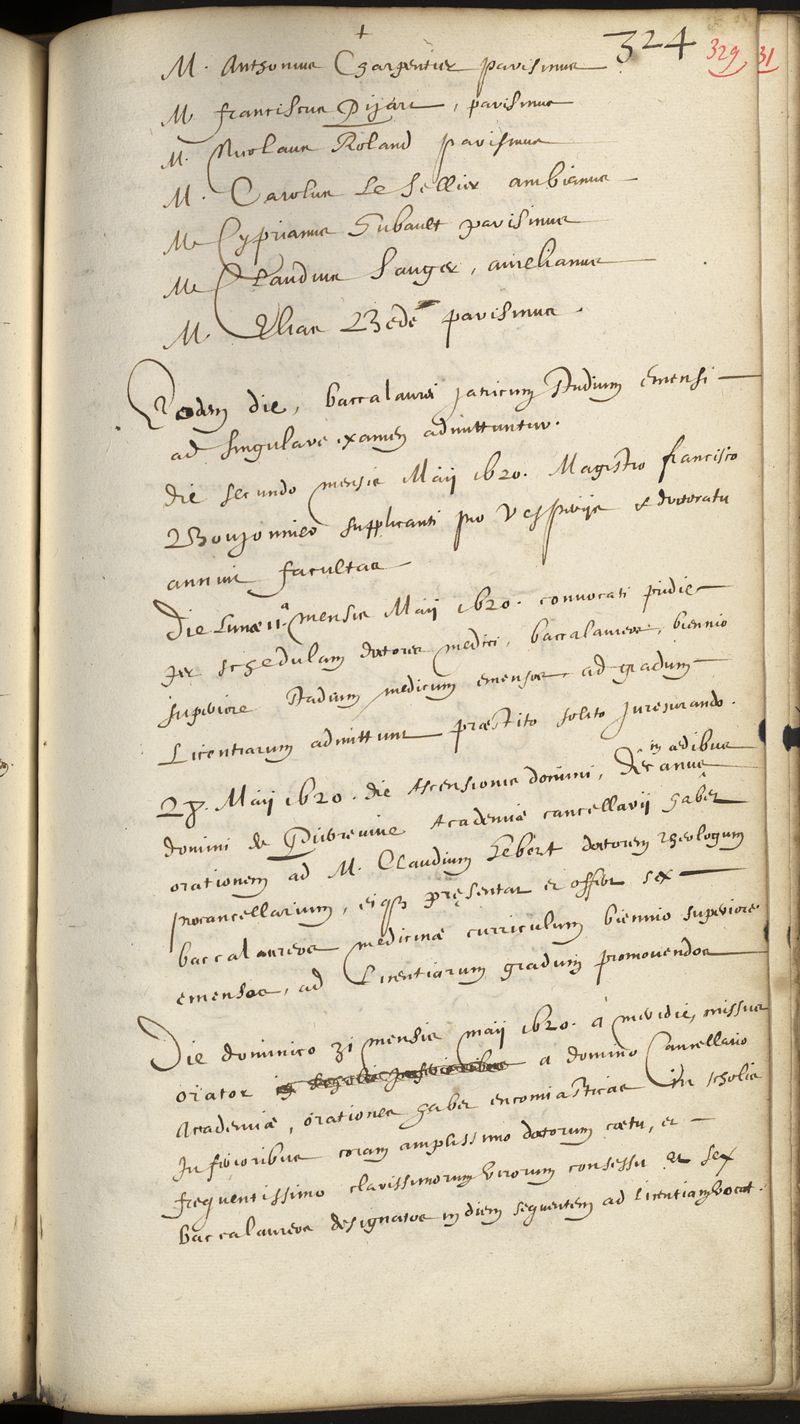 324 329 31
M. Anthonius Charpentier parisinus
M. franciscus Pijart, parisinus
M. Nicolaus Roland parisinus
M. Carolus Le Sellier ambianus
M. Cyprianus Hubault parisinus
M. Claudius Sauger, aurelianus
M. Elias Bedé parisinus.
Eodem die, baccalaurei patricum studium emensi
ad singulare examen admittuntur.
die secundo mensis Maij 1620. Magistro francisco
Boujonnier supplicanti pro Vesperijs & doctoratu
annuit facultas
Die Lunæ 11ª. mensis Maij 1620. convocati pridie
per schedulam doctores medici, baccalaureos, biennio
superiore stadium medicum emensos ad gradum
Licentiarum admittunt præstito solito jurejurando.
28. Maij 1620. die Ascensionis domini, Decanus in ædibus
domini de Academiæ cancellarij habet
orationem ad M. Claudium Hebert doctorem theologum
procancellarium, eiq3 præsentat et offert sex
baccalaureos medicinæ curriculum biennio superiore
emensos, ad Licentiarum gradum promouendos
Die dominico 31 mensis maij 1620. à meridie, missus
orator a domino Cancellario
Academiæ, orationes habet encomiasticas in scholis
Inferioribus coram amplissimo doctorum coetu, et
frequentissimo clarissimorum virorum consessu et sex
baccalaureos designatos in diem sequentem ad Licentiam vocat.